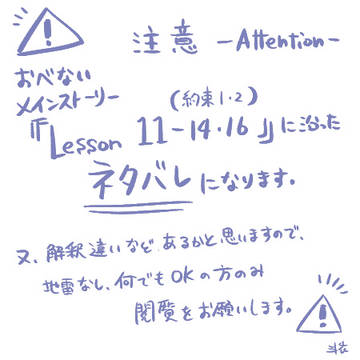 注意 -Attention-
おべない
メインストーリー
(約束1・2)
『Lesson 11-14・16』に沿った
ネタバレになります。
又、解釈違いなど、あるかと思いますので、
地雷なし、何でもOKの方のみ
閲覧をお願いします。